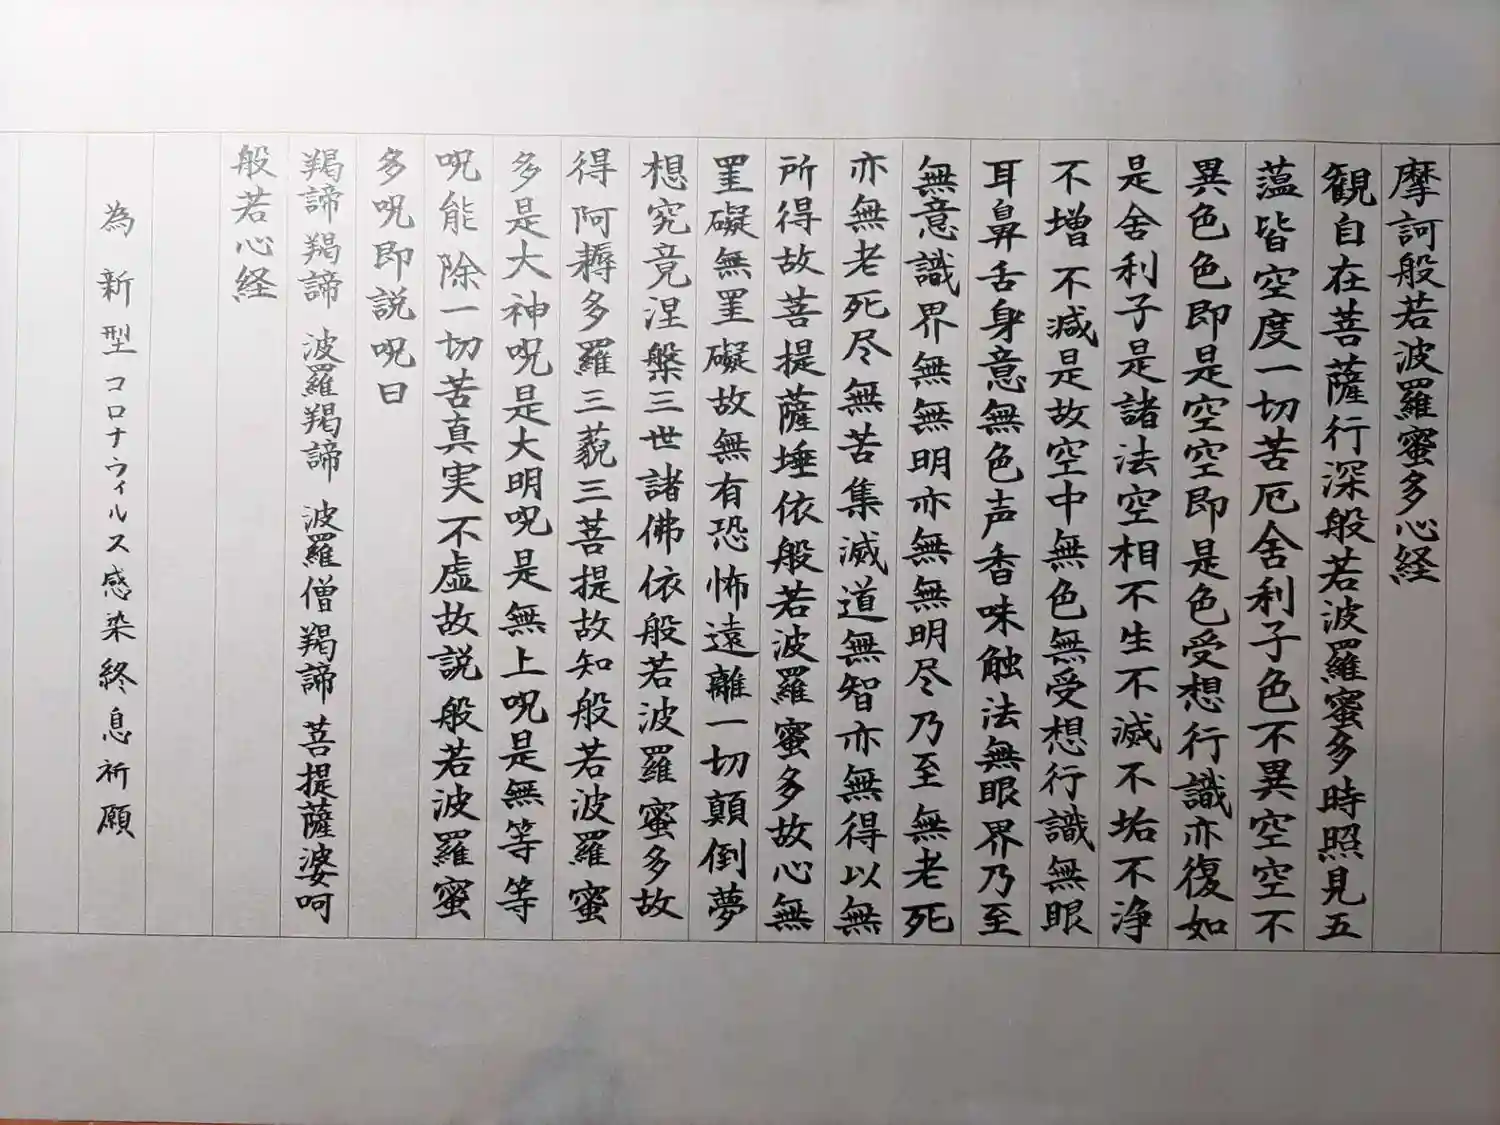 摩訶般若波羅蜜多心経
観自在菩薩行深般若波羅蜜多時照見五
薀皆空度一切苦厄舎利子色不異空空不
異色色即是空空即是色受想行識亦復如
是舎利子是諸法空相不生不滅不垢不浄
不増不減是故空中無色無受想行識無眼
耳鼻舌身意無色声香味触法無眼界乃至
無意識界無無明亦無無明尽乃至無老死
亦無老死尽無苦集滅道無智亦無得以無
所得故菩提薩埵依般若波羅蜜多故心無
罣礙無罣礙故無有恐怖遠離一切顛倒夢
想究竟涅槃三世諸佛依般若波羅蜜多故
得阿耨多羅三藐三菩提故知般若波羅蜜
多是大神呪是大明呪是無上呪是無等等
呪能除一切苦真実不虚故説般若波羅蜜
多呪即説呪曰
羯諦羯諦 波羅羯諦 波羅僧羯諦 菩提薩婆呵
般若心経
為 新型コロナウィルス感染終息祈願